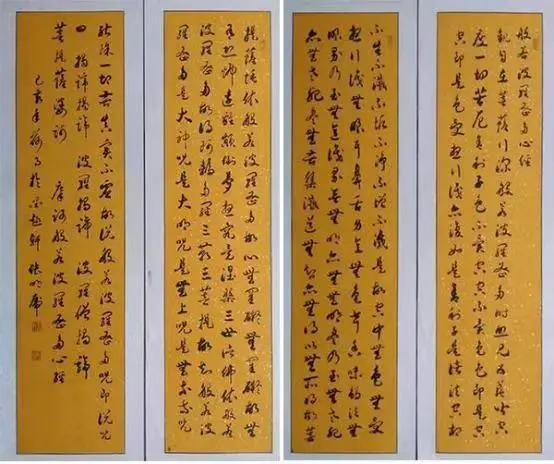 般若波羅蜜多心經
觀自在菩薩行深般若波羅蜜多時照見五蘊皆空
度一切苦厄舍利子色不異空空不異色色即是空
空即是色受想行識亦復如是舍利子是諸法空相
不生不滅不垢不淨不增不減是故空中無色無受
想行識無眼耳鼻舌身意無色聲香味觸法無
眼界乃至無意識界無無明亦無無明盡乃至無老死
亦無老死盡無苦集滅道無智亦無得以無所得故菩
提薩埵依般若波羅蜜多故心無罣礙無罣礙故無
有恐怖遠離顛倒夢想究竟涅槃三世諸佛依般若
波羅蜜多故得阿耨多羅三藐三菩提故知般若波
羅蜜多是大神咒是大明咒是無上咒是無等等咒
能除一切苦真實不虛故說般若波羅蜜多咒即說咒
曰 揭諦揭諦 波羅揭諦 波羅僧揭諦
菩提薩婆訶 摩訶般若波羅蜜多心經
己亥年 月於 軒